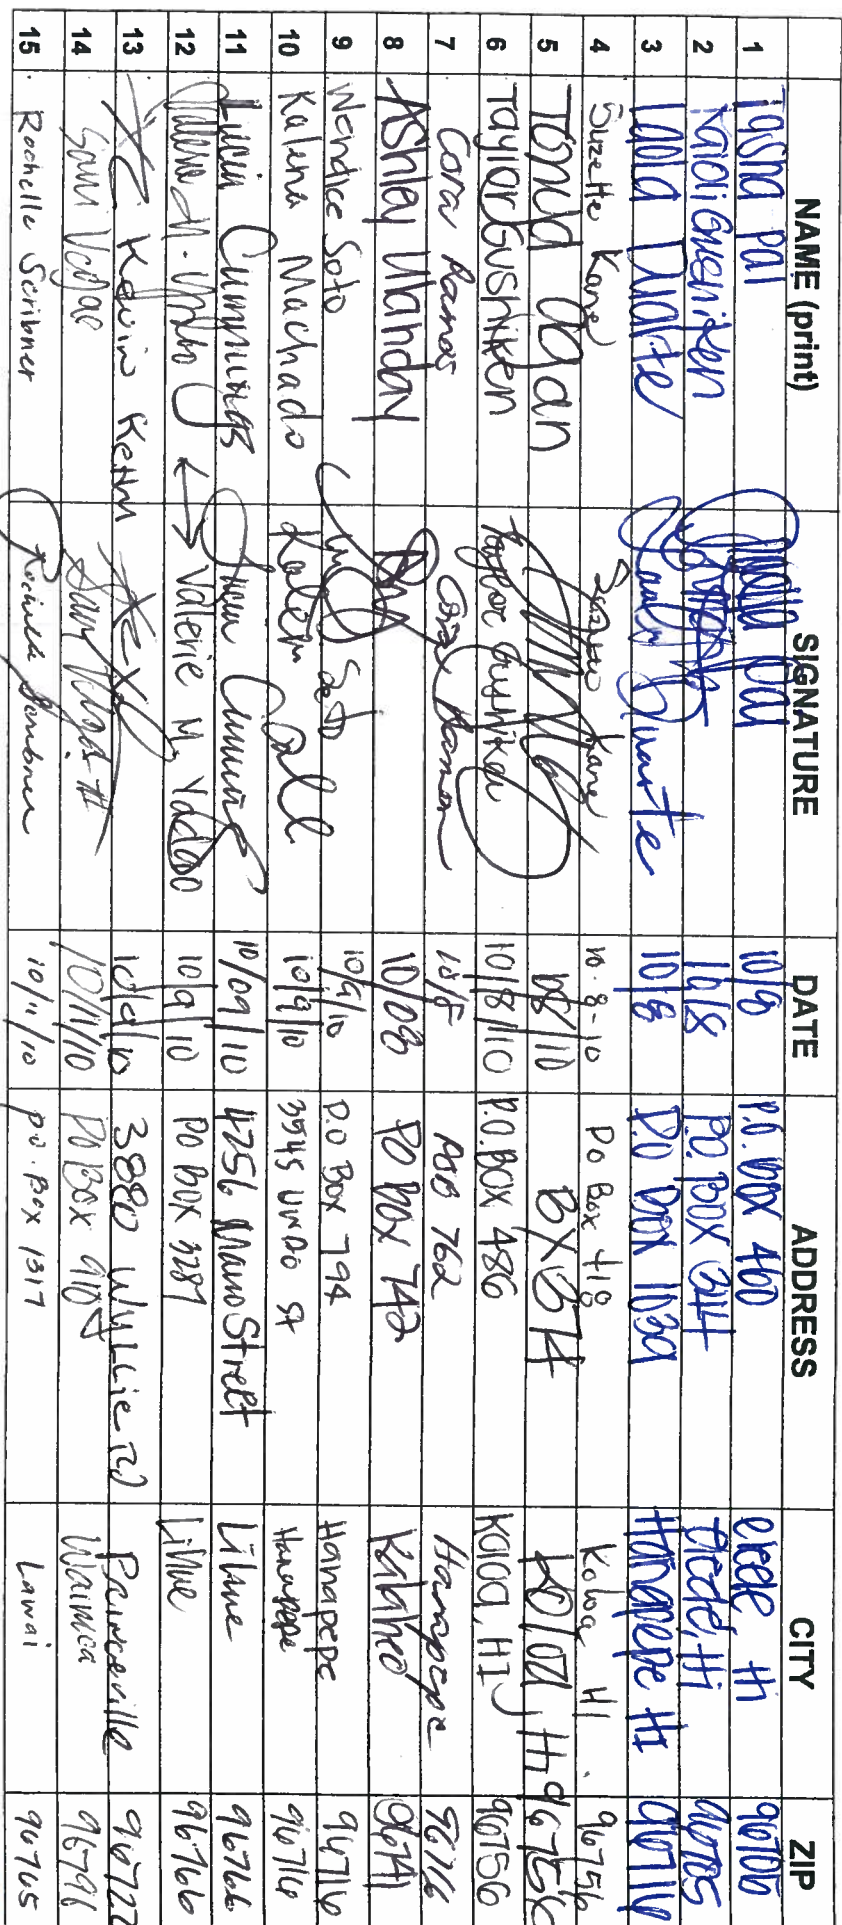 NAME (print) SIGNATURE DATE ADDRESS CITY ZIP
1 Tasha Pal Pal 10/8 P.O. box 460 elele Hi 96705
2 Gushiken 10/8 P.O. Box 344 elele, Hi 96705
3 Duarte Duarte 10/8 P.O box 1039 Hanapepe HI 96716
4 Suzette Kane Suzette Kane 10-8-10 Po Box 418 Koloa HI 96756
5 10/8/10 BX 674 Koloa, Hi 96756
6 Taylor Gushiken Taylor Gushiken 10/8/10 P.O. BOX 486 Koloa, HI 96756
7 Cora Cora 10/8 POB 762 Hanapepe 96716
8 Ashley 10/08 PO box 742 Kalaheo 96741
9 Wendice Soto Soto 10/9/10 P.O Box 794 Hanapepe 96716
10 Kalena Machado 10/9/10 3545 UNAO St Hanapepe 96716
11 Lucia Cummings Cummings 10/09/10 4256 Street Lihue 96766
12 ↔ Valerie M. 10/9/10 PO box 3287 Lihue 96766
13 Kevin 10/9/10 3880 Wyllie RD Princeville 96722
14 Sam 10/11/10 PO Box Waimea 96796
15 Rochelle Scribner Rochelle Scribner 10/11/10 P.O. Box 1317 Lawai 96765